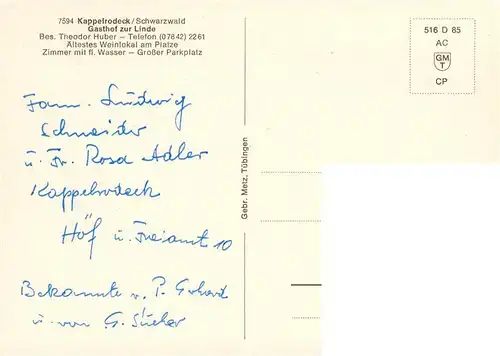 7594 Kappelrodeck/Schwarzwald
Gasthof zur Linde
Bes. Theodor Huber — Telefon (07842) 2261
Ältestes Weinlokal am Platze
Zimmer mit fl. Wasser — Großer Parkplatz
Fam. Ludwig
Schneider
u. Fr. Rosa Adler
Kappelrodeck
Höf u. 10
Bekannte v. P. Gerhard
u. von G.
Gebr. Metz, Tübingen
516 D 85
AC
GM
T
CP